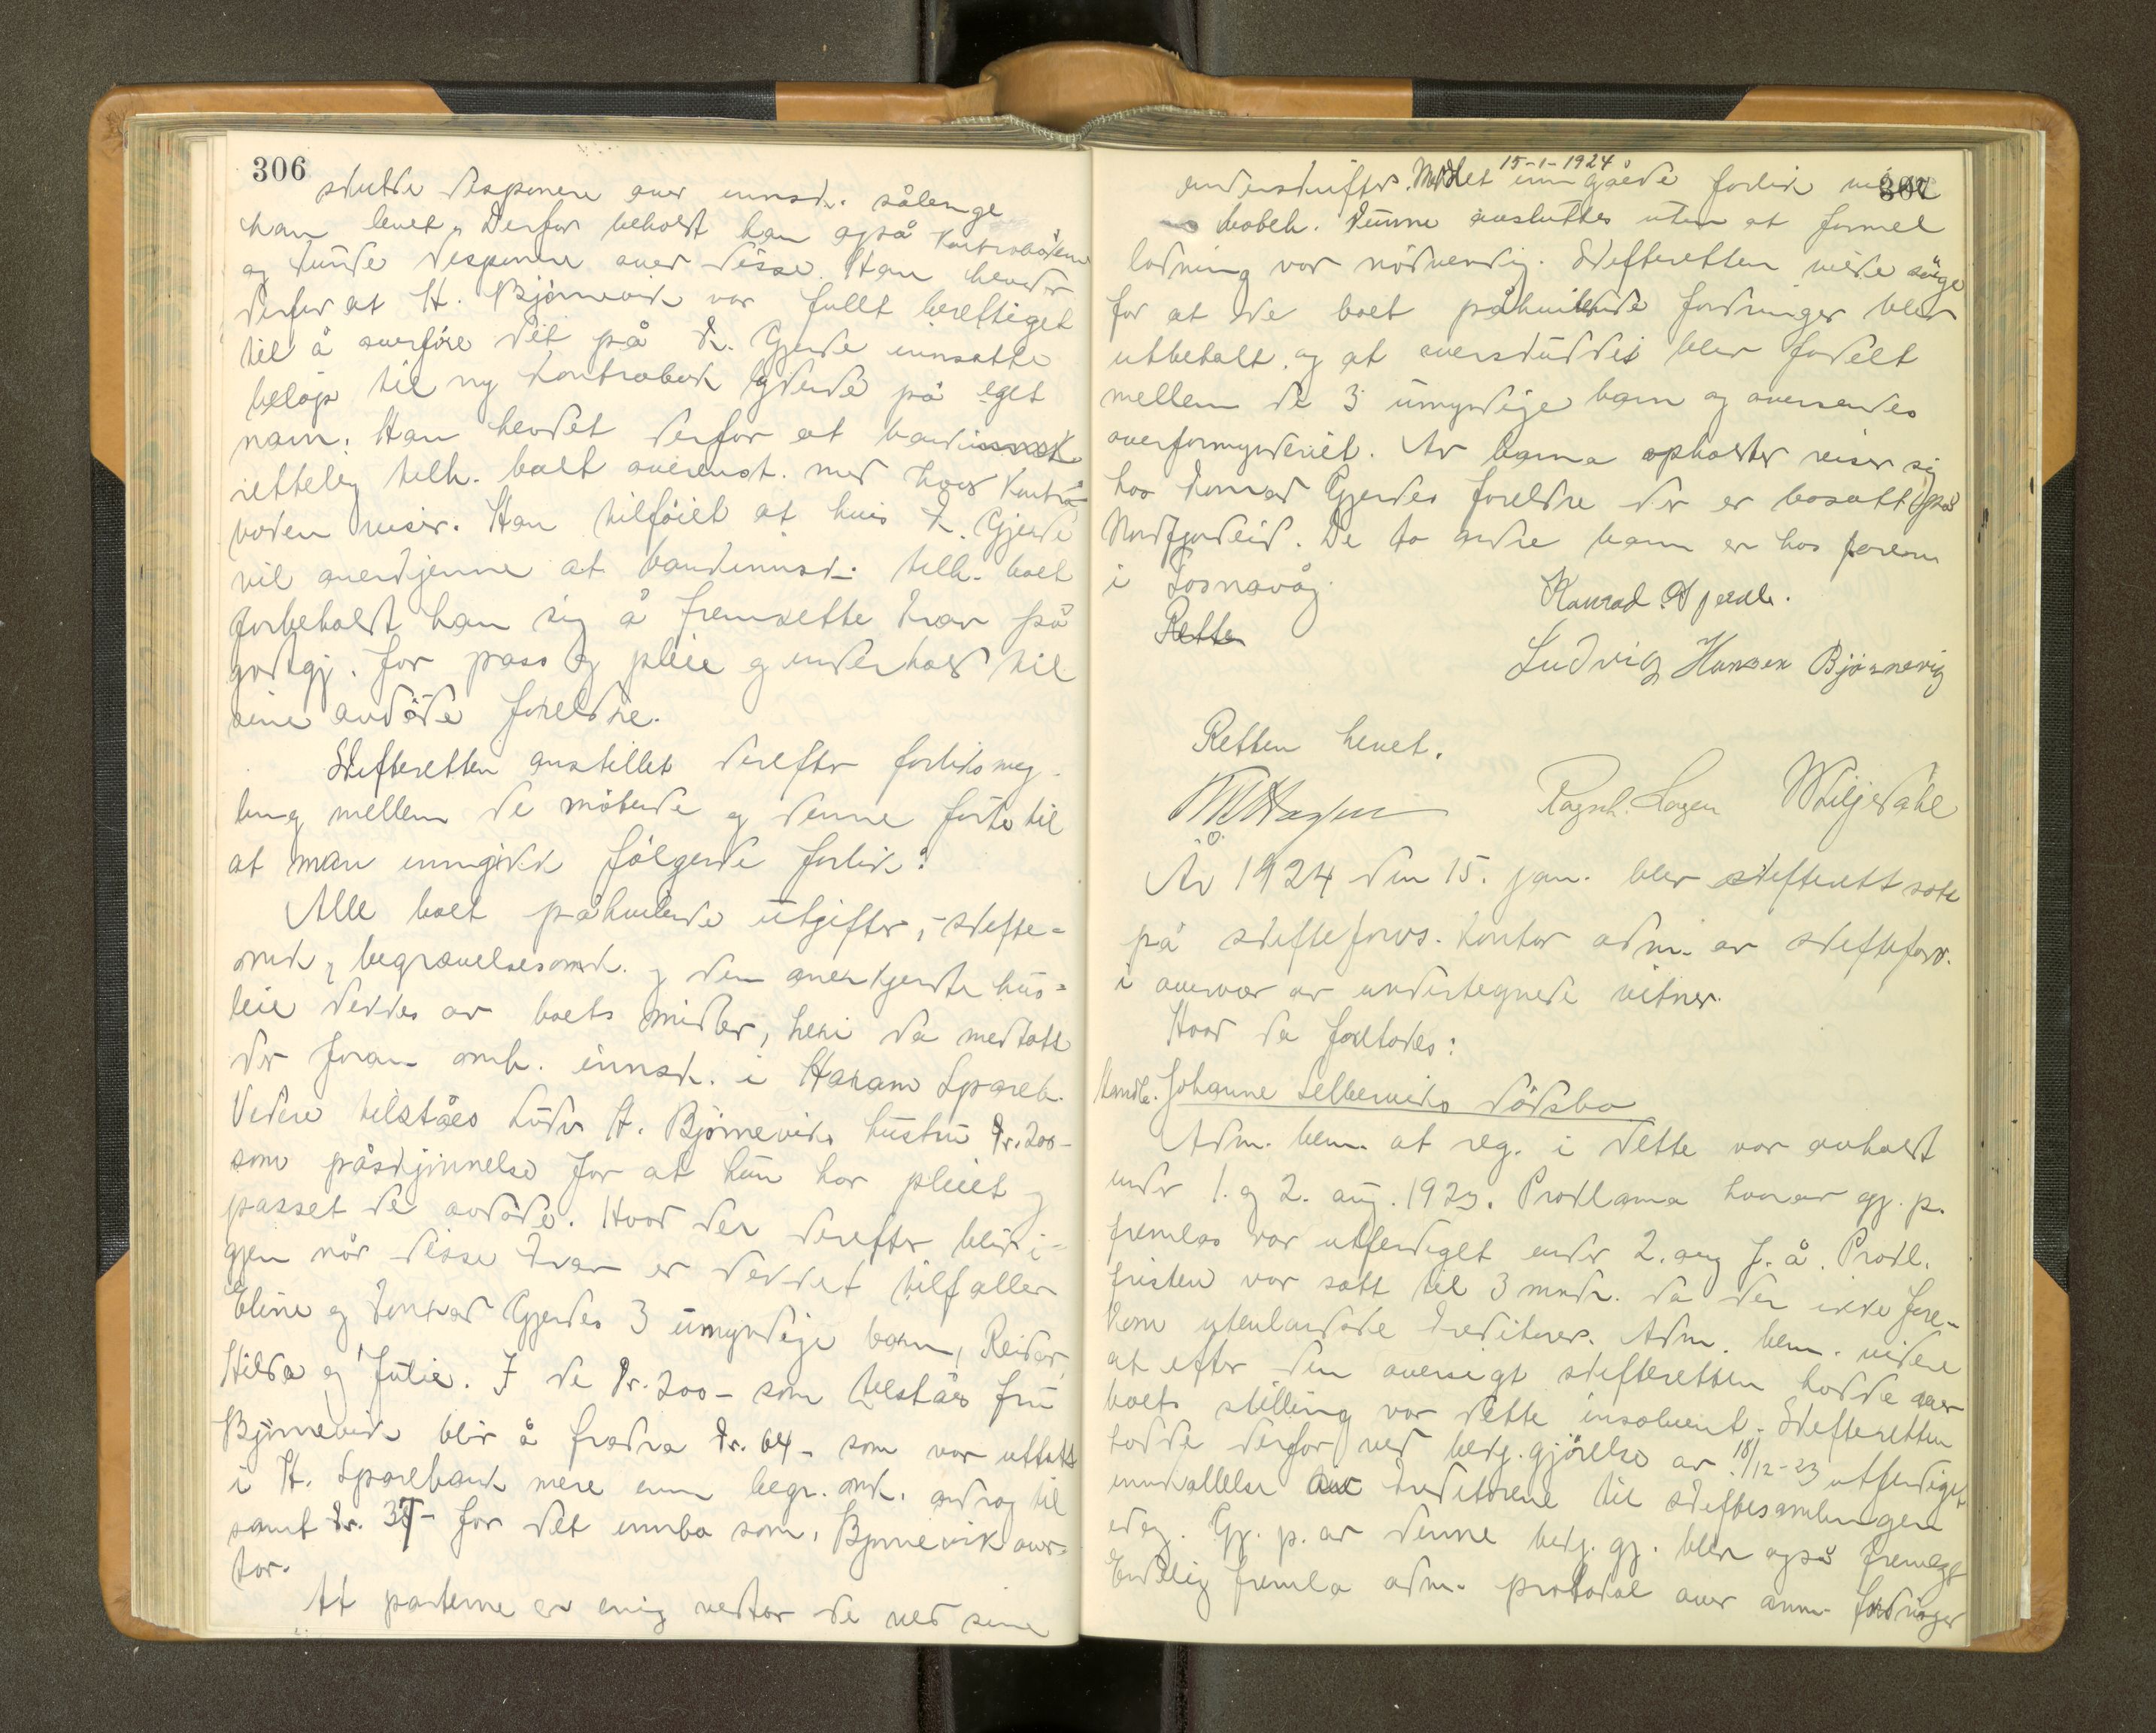 306
skulde disponere over innsk. sålenge
han levet. Derfor beholdt han også kontrabøkene
og kunde disponere over disse. Han hevder
derfor at H. Bjørnevik var fullt berettiget
til å overføre det på K. Gjerde innsatte
beløp til ny kontrabok lydende på eget
navn. Han hevdet derfor at bankinnsk.
rettelig tilh. boet overenst. med hvad kontra-
boken viser. Han tilføiet at hvis K. Gjerde
vil anerkjenne at bankinnsk. tilh. boet
forbeholdt han sig å fremsette krav på
godtgj. for pass og pleie og underhold til
sine avdøde foreldre.
Skifteretten anstillet derefter forliksmeg-
ling mellem de møtende og denne førte til
at man inngikk følgende forlik:
Alle boet påhvilende utgifter, - skifte-
omk, begravelsesomk. og den anerkjendte hus-
leie dekkes av boets midler, heri da medtatt
de foran omh. innsk. i Haram Spareb.
Videre tilståes Ludv. H. Bjørneviks hustru kr. 200-
som påskjønnelse for at hun har pleiet og
passet de avdøde. Hvad der derefter blir i-
gjen når disse krav er dekket tilfaller
Eline og Konrad Gjerdes 3 umyndige barn, Reidar,
Hilda og Julie. I de kr. 200- som tilståes fru
Bjørnevik blir å fradra kr. 64- som var uttatt
i H. Sparebank mere enn begr. omk. androg til
samt kr. 37- for det innbo som Bjørnevik over-
tar.
At partene er enig vedtar de ved sine
307
underskrifter. Med det 15-1-1924 inngåede forlik
bobeh. kunne avsluttes uten at formel
lodning var nødvendig. Skifteretten vilde sørge
for at de boet påhvilende fordringer blev
utbetalt og at overskuddet blev fordelt
mellem de 3 umyndige barn og oversendes
overformynderiet. Av barna opholder Reidar sig
hos Konrad Gjerdes foreldre der er bosatt på
Nordfjordeid. De to andre barn er hos faren
i Fosnavåg.
Retten
Konrad Gjerde.
Ludvig Hansen Bjørnevig
Retten hevet.
Ragnh. Hagen
WLiljedahl
År 1924 den 15. jan. blev skifterett satt
på skifteforvs. kontor adm. av skifteforv.
i overvær av undertegnede vitner.
Hvad da foretodes:
Handle. Johanne Selberviks dødsbo
Adm. bem. at reg. i dette var avholdt
under 1. og 2. aug. 1923. Proklama hvorav gj. p.
fremlas var utferdiget under 2. aug f. å. Prokl.
fristen var satt til 3 mndr. da der ikke fore-
kom utenlandske kreditorer. Adm. bem. videre
at efter den oversigt skifteretten hadde over
boets stilling var dette insolvent. Skifteretten
hadde derfor ved bekj.gjørelse av 18/12-23 utferdiget
innkallelse av kreditorene til skiftesamlingen
idag. Gj. p. av denne bekj. gj. blev også fremlagt
Endelig fremla adm. protokol over anm. fordringer